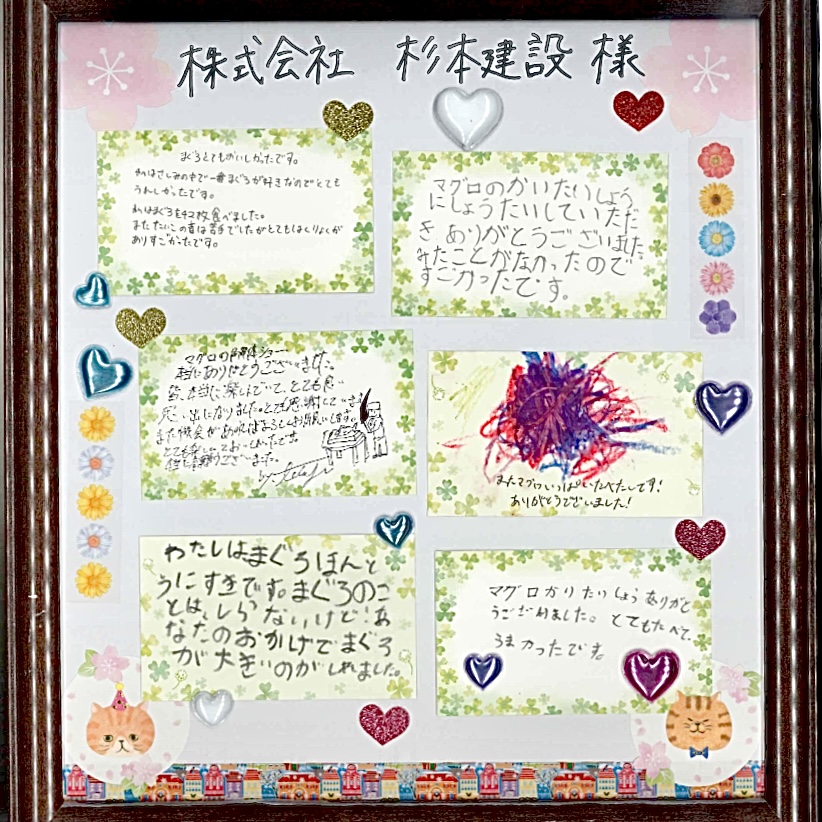 株式会社 杉本建設 様
まぐろとてもおいしかったです。
わはさしみの中で一番まぐろが好きなのでとても
うれしかったです。
わはまぐろを42枚食べました。
またたいこの音は苦手でしたがとてもはくりょくが
ありすごかったです。
マグロのかいたいしょう
にしょうたいしていただ
きありがとうございました。
みたことがなかったので
すごかったです。
マグロの解体ショー
本当にありがとうございました。
皆、本当に楽しんでいて、とても良い
思い出になりました。とても感謝しています。
また機会があればよろしくお願いします。
とても楽しくておいしかったです。
ございました。
またマグロいっぱいたべたいです!
ありがとうございました!
わたしはまぐろほんと
うにすきです。まぐろのこ
とは、しらないけど!あ
なたのおかげでまぐろ
が大きいのがしれました。
マグロかいたいしょうありがと
うございました。とてもたべて、
うまかったです。